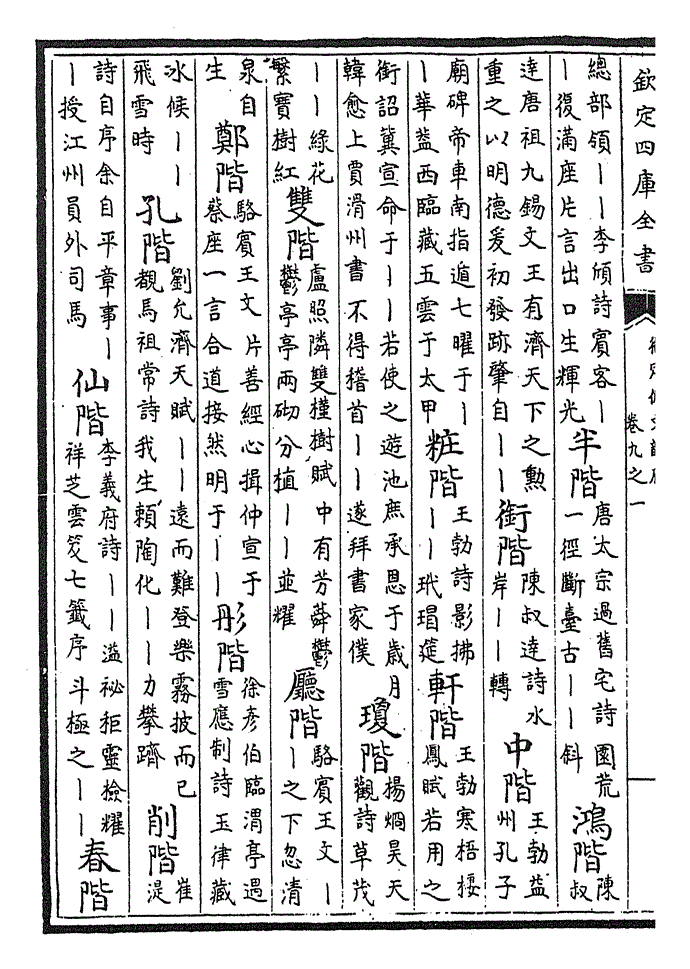 欽定四庫全書
卷九之一
總部領｜｜李頎詩賓客｜
｜復滿座片言出口生輝光
半階
唐太宗過舊宅詩園荒
一徑斷臺古｜｜斜
鴻階
陳
叔
達唐祖九錫文王有濟天下之勲
重之以明德爰初發跡肇自｜｜
銜階
陳叔達詩水
岸｜｜轉
中階
王勃益
州孔子
廟碑帝車南指遁七曜于｜
｜華葢西臨藏五雲于太甲
粧階
王勃詩影拂
｜｜玳瑁筵
軒階
王勃寒梧棲
鳳賦若用之
銜詔冀宣命于｜｜若使之遊池庶承恩于歲月
韓愈上賈滑州書不得稽首｜｜遂拜書家僕
瓊階
楊烱昊天
觀詩草茂
｜｜綠花
繁寶樹紅
雙階
盧照隣雙槿樹賦中有芳蕣鬱
鬱亭亭兩砌分植｜｜並耀
廳階
駱賓王文｜
｜之下忽清
泉自
生
鄭階
駱賓王文片善經心揖仲宣于
蔡座一言合道接然明于｜｜
彤階
徐彥伯臨渭亭遇
雪應制詩玉律藏
冰候｜｜
飛雪時
孔階
劉允濟天賦｜｜遠而難登樂霧披而已
覩馬祖常詩我生賴陶化｜｜力攀躋
削階
崔
湜
詩自序余自平章事｜
｜授江州員外司馬
仙階
李義府詩｜｜溢祕柜靈檢耀
祥芝雲笈七籤序斗極之｜｜
春階